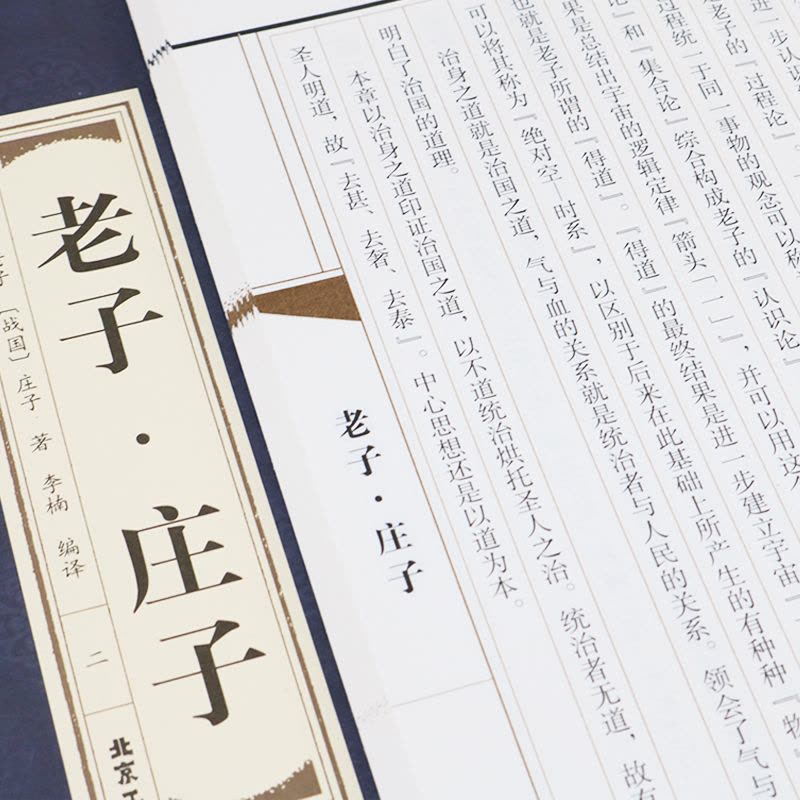 进一步认识
老子的『过程论』。
过程统一于同一事物的观念可以称
论』和『集合论』综合构成老子的『认识论』
果是总结出宇宙的逻辑定律『箭头「一」』，并可以用这
也就是老子所谓的『得道』。『得道』的最终结果是进一步建立宇宙『
可以将其称为『绝对空—时系』，以区别于后来在此基础上所产生的有种种『物
治身之道就是治国之道，气与血的关系就是统治者与人民的关系。领会了气与
明白了治国的道理。
本章以治身之道印证治国之道，以不道统治烘托圣人之治。统治者无道，故有
圣人明道，故『去甚、去奢、去泰』。中心思想还是以道为本。
老子·庄子
老子·庄子
子〔战国〕庄子 著 李楠 编译
二
北京